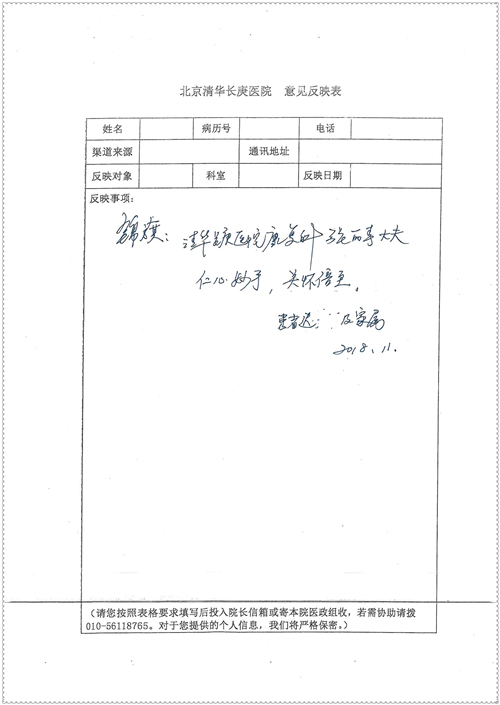 北京清华长庚医院 意见反映表
姓名 病历号 电话
渠道来源 通讯地址
反映对象 科室 反映日期
反映事项:
锦旗:清华长庚医院康复科 张丽事大夫
仁心妙手,关怀倍至。
患者迟 及家属
2018.11.
(请您按照表格要求填写后投入院长信箱或寄本院医政组收,若需协助请拨
010-56118765。对于您提供的个人信息,我们将严格保密。)